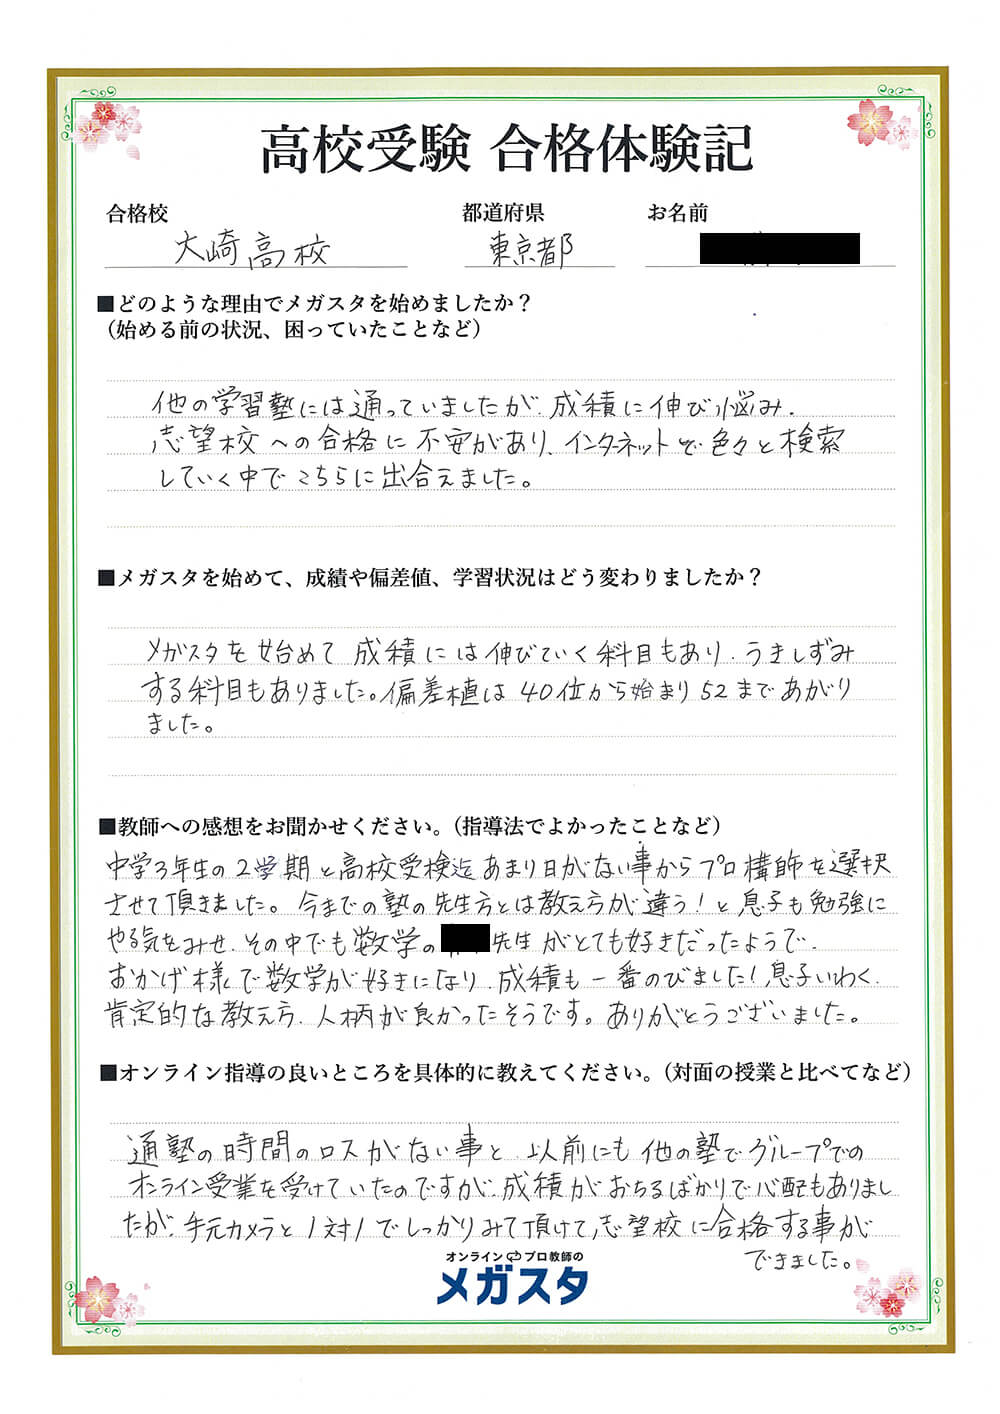 高校受験 合格体験記
合格校 都道府県 お名前
大崎高校 東京都
■どのような理由でメガスタを始めましたか？
（始める前の状況、困っていたことなど）
他の学習塾には通っていましたが、成積に伸び悩み、
志望校への合格に不安があり、インターネットで色々と検索
していく中でこちらに出合えました。
■メガスタを始めて、成績や偏差値、学習状況はどう変わりましたか？
メガスタを始めて成積には伸びていく科目もあり、うきしずみ
する科目もありました。偏差植は40位から始まり52まであがり
ました。
■教師への感想をお聞かせください。（指導法でよかったことなど）
中学3年生の2学期と高校受検迄あまり日がない事からプロ構師を選択
させて頂きました。今までの塾の先生方とは教え方が違う！と息子も勉強に
やる気をみせ、その中でも数学の 先生がとても好きだったようで、
おかげ様で数学が好きになり、成積も一番のびました！息子いわく、
肯定的な教え方、人柄が良かったそうです。ありがとうございました。
■オンライン指導の良いところを具体的に教えてください。（対面の授業と比べてなど）
通塾の時間のロスがない事と、以前にも他の塾でグループでの
オンライン受業を受けていたのですが、成積がおちるばかりで心配もありまし
たが、手元カメラと1対1でしっかりみて頂けて、志望校に合格する事が
できました。
オンライン プロ教師の
メガスタ